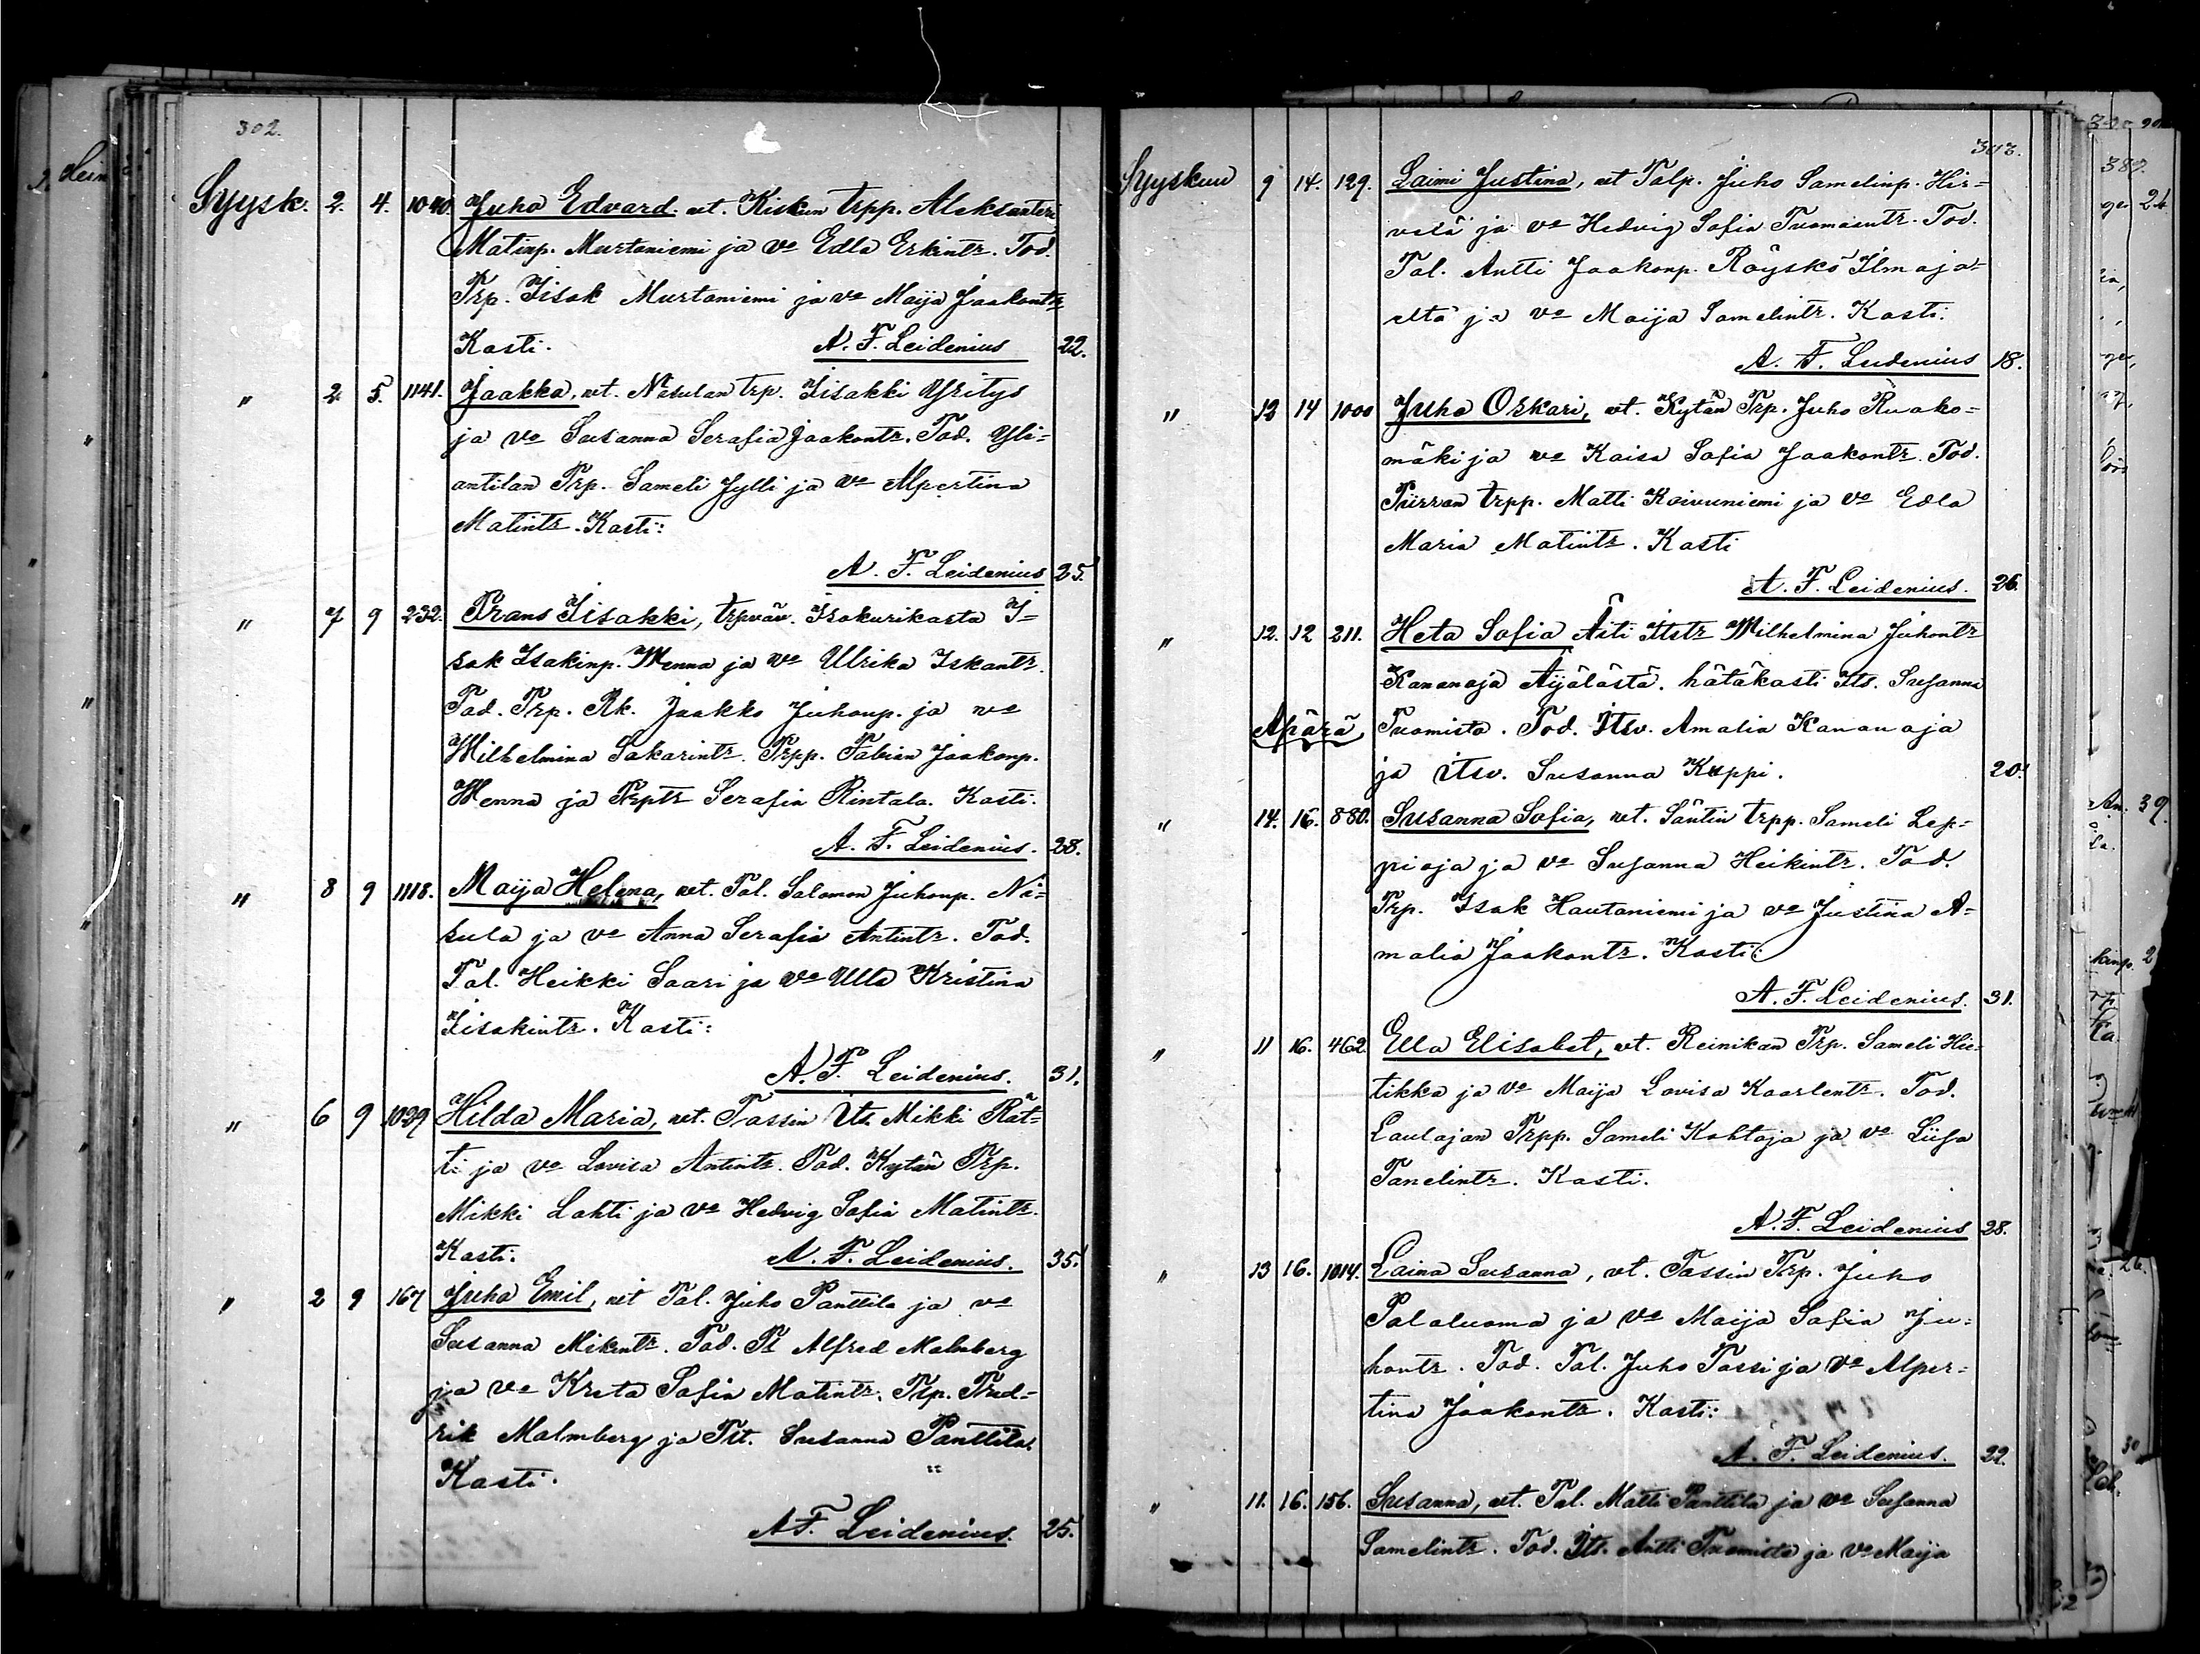 302.
Syysk. 2. 4. 1040. Juho Edvard. vt. Kiskun trpp. Aleksanteri
Matinp. Murtoniemi ja vo Edla Erkintr. Tod.
Trp. Iisak Murtoniemi ja vo Maija Jaakontr
Kasti. A. F. Leidenius 22.
" 2 5. 1141. Jaakko, vt. Näsulan trp. Iisakki Yritys
ja vo Susanna Serafia Jaakontr. Tod. Yli=
antilan Trp. Sameli Jylli ja vo Alpertina
Matintr. Kasti:
A. F. Leidenius 25.
" 7 9 232. Frans Iisakki, trpväv. Isokurikasta I=
sak Isakinp. Wenna ja vo Ulrika Iskantr.
Tod. Trp. Rk. Jaakko Juhonp. ja vo
Wilhelmina Sakarintr. Trpp. Fabian Jaakonp.
Wenna ja Trptr Serafia Rintala. Kasti.
A. F. Leidenius. 28.
" 8 9 1118. Maija Helena, vt. Tal. Salomon Juhonp. Nä=
sula ja vo Anna Serafia Antintr. Tod.
Tal. Heikki Saari ja vo Ulla Kristina
Iisakintr. Kasti:
A. F. Leidenius. 31.
" 6 9 1029 Hilda Maria, vt. Tassin Its. Mikki Rät=
ti ja vo Lovisa Antintr. Tod. Kytän Trp.
Mikki Lahti ja vo Hedvig Sofia Matintr.
Kasti. A. F. Leidenius. 35.
" 2 9 167 Juho Emil, vt Tal. Juho Panttila ja vo
Susanna Mikintr. Tod. Alfred Malmberg
ja vo Kreta Sofia Matintr. Trp. Fred=
rik Malmberg ja Tlt. Susanna Panttila.
Kasti.
A F. Leidenius. 25.
303.
Syyskuu 9 14. 129. Laimi Justina, vt Talp. Juho Samelinp. Hir=
velä ja vo Hedvig Sofia Tuomaantr. Tod.
Tal. Antti Jaakonp. Röyskö Ilmajo=
elta ja vo Maija Samelintr. Kasti.
A. F. Leidenius 18.
" 12 14 1000 Juho Oskari, vt. Kytän Trp. Juho Ruoko=
mäki ja vo Kaisa Sofia Jaakontr. Tod.
Piirran trpp. Matti Koivuniemi ja vo Edla
Maria Matintr. Kasti
A. F. Leidenius. 26.
" 12. 12 211. Heta Sofia Äiti Itstr Wilhelmina Juhontr
Kananoja Äijälästä. hätäkasti Its. Susanna
Äpärä, Tuomisto. Tod. Itsv. Amalia Kananoja
ja itsv. Susanna Koppi. 20.
" 14. 16. 880. Susanna Sofia, vt. Säntin trpp. Sameli Lep=
pioja ja vo Susanna Heikintr. Tod.
Trp. Isak Hautaniemi ja vo Justina A=
malia Jaakontr. Kasti:
A. F. Leidenius. 31.
" 11 16. 462. Ella Elisabet, vt. Reinikan Trp. Sameli Hie=
tikko ja vo Maija Lovisa Kaarlentr. Tod.
Laulajan Trpp. Sameli Kohtoja ja vo Liisa
Tanelintr. Kasti.
A. F. Leidenius 28.
" 13 16. 1014. Laina Susanna, vt. Tassin Trp. Juho
Palaluoma ja vo Maija Sofia Ju=
hontr. Tod. Tal. Juho Tassi ja vo Alper=
tina Jaakontr. Kasti:
A. F. Leidenius. 22.
" 11. 16. 156. Susanna, vt. Tal. Matti Panttila ja vo Susanna
Samelintr. Tod. Its. Antti Tuomisto ja vo Maija